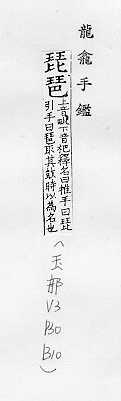 龍龕手鑑
琵琶
上音毗下音杷釋名曰推手曰琵
引手曰琶取其鼓時以為名也
(玉部
V3
P30
B10)